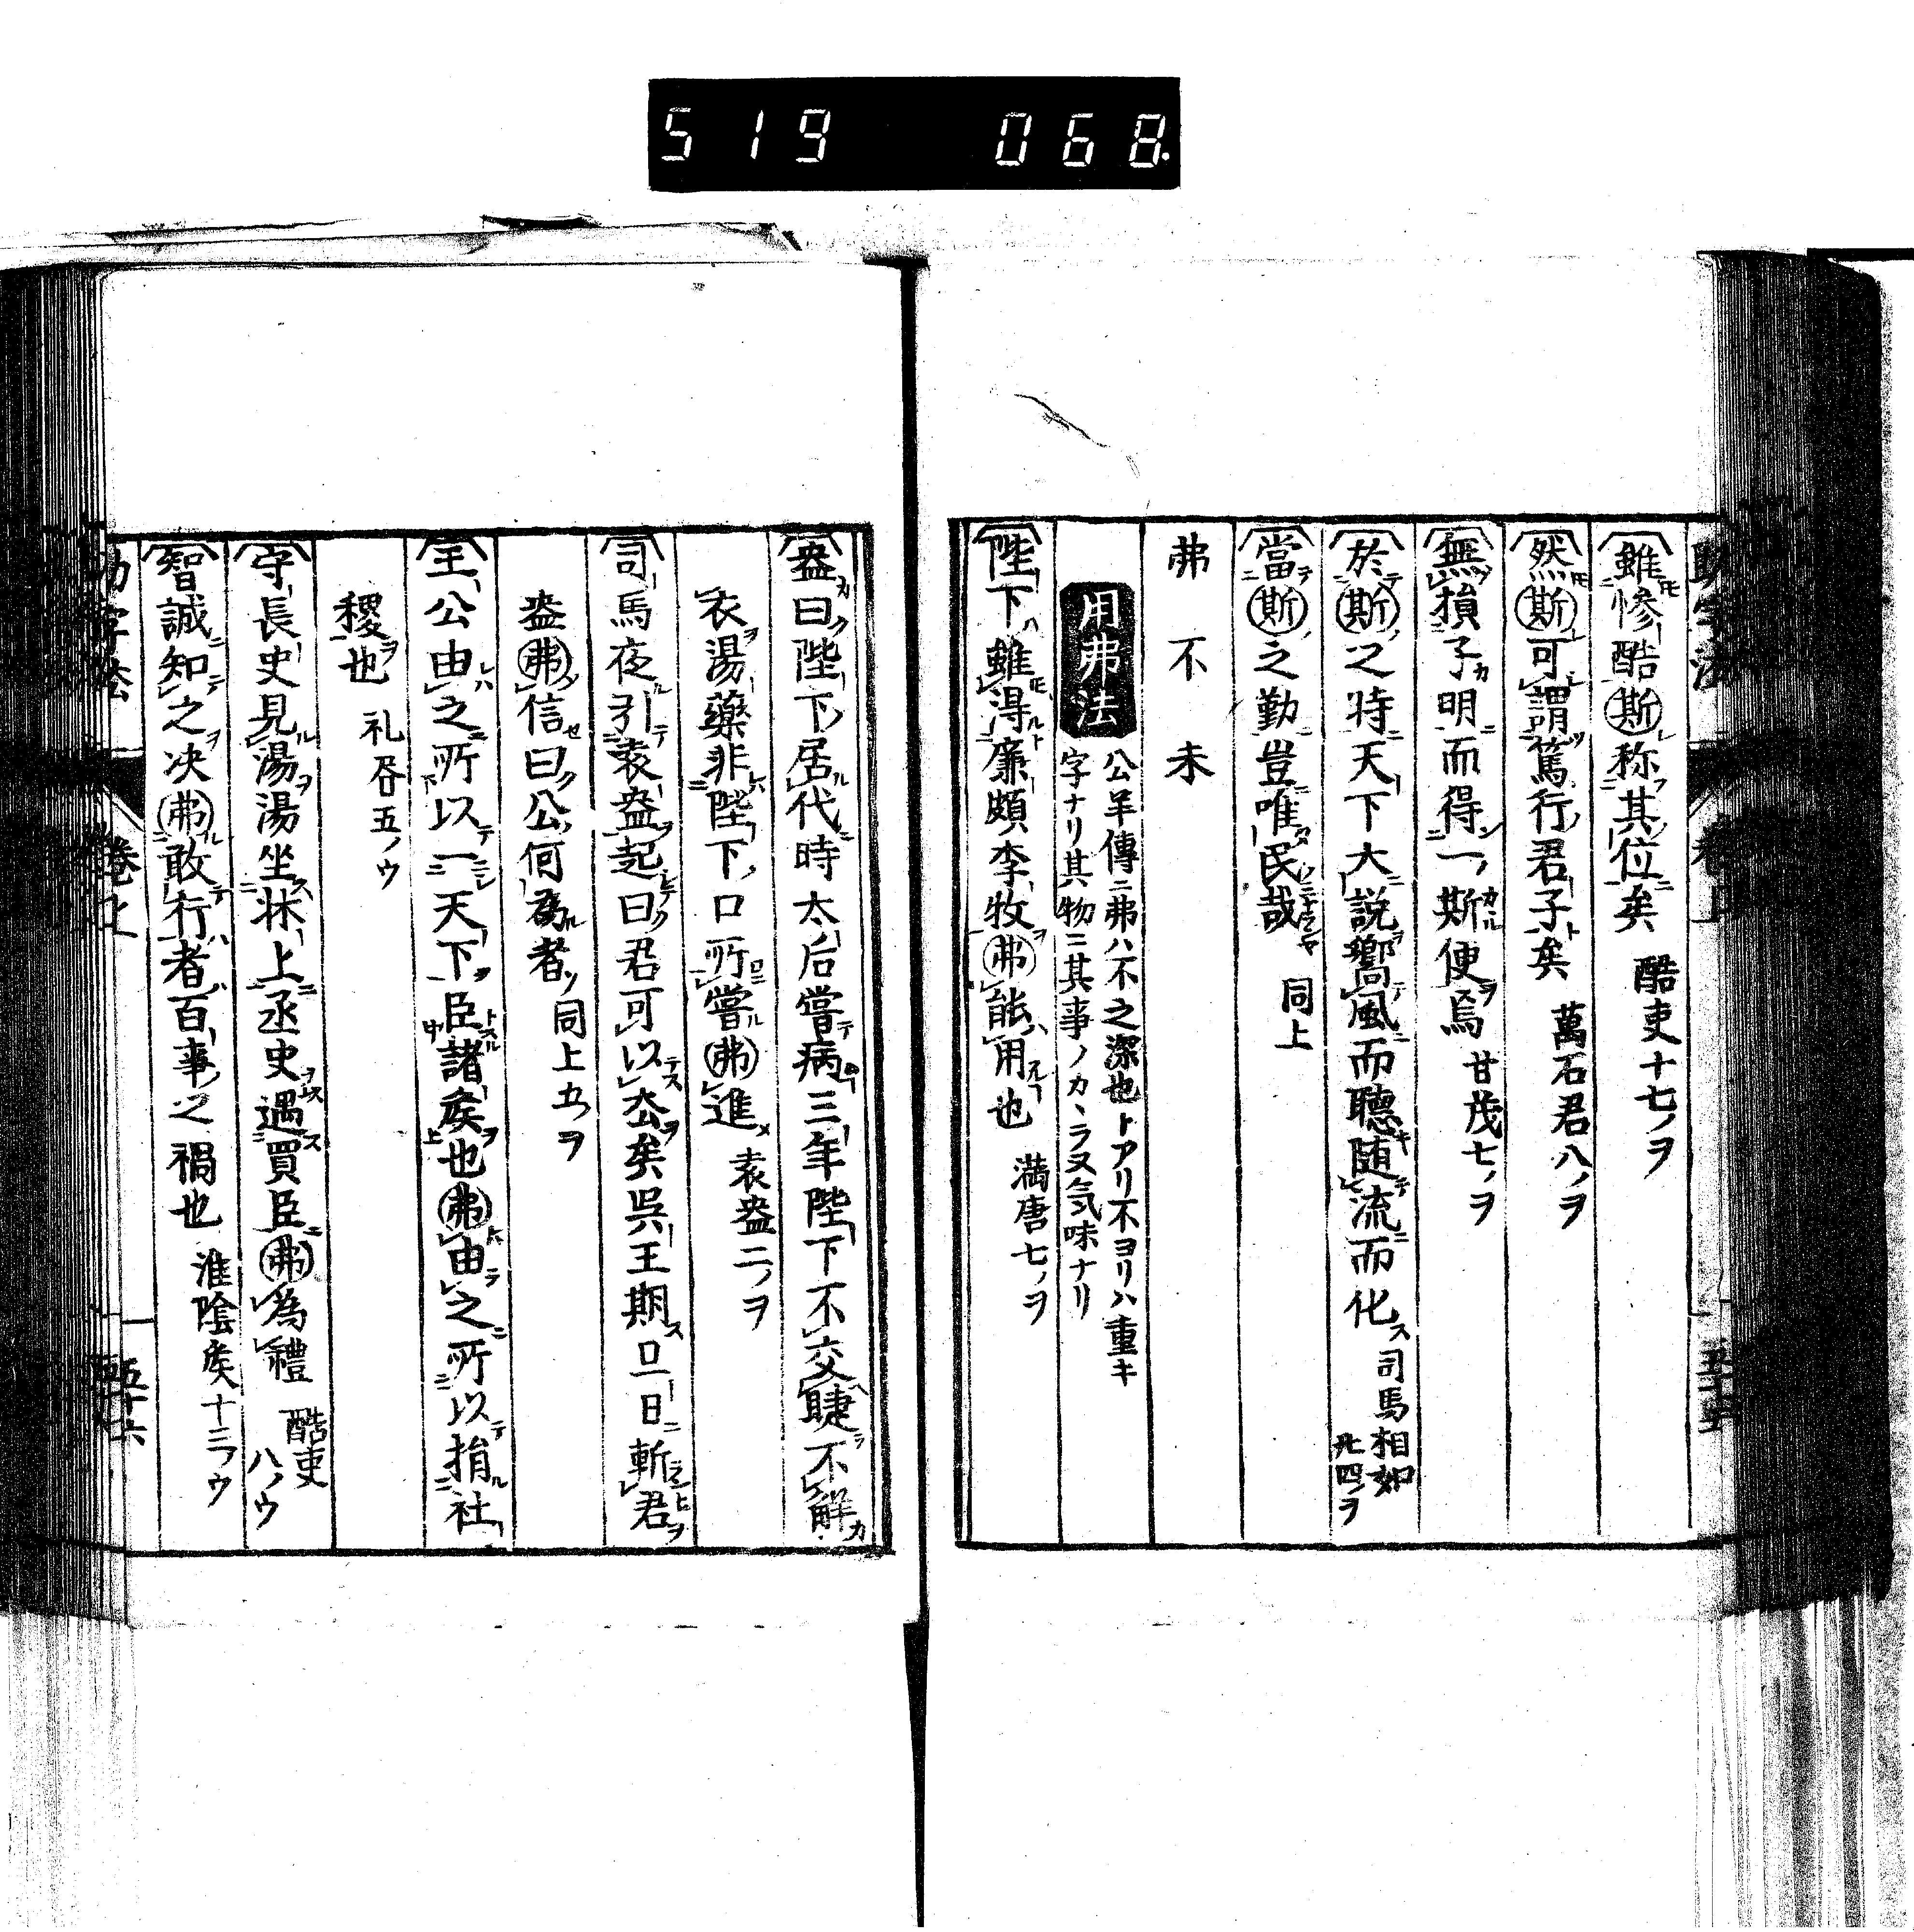 519 068.
雖惨酷斯称其位矣 酷吏十七ノヲ
然斯可謂篤行君子矣 萬石君八ノヲ
無損子明而得一斯便焉 甘茂七ノヲ
於斯之時天下大説嚮風而聽随流而化 司馬相如 廿四ノヲ
當斯之勤豈唯民哉 同上
弗不未
用弗法 公羊傳ニ弗ハ不之深也トアリ不ヨリハ重キ
字ナリ其物ニ其事ノカヽラヌ気味ナリ
陛下雖得廉頗李牧弗能用也 満唐七ノヲ
盎曰陛下居代時太后嘗病三年陛下不交睫不解
衣湯藥非陛下口所嘗弗進 袁盎二ノヲ
司馬夜引袁盎起曰君可以去矣呉王期旦日斬君
盎弗信曰公何為者 同上五ノヲ
王公由之所以一天下臣諸矣也弗由之所以捐社
稷也 礼書五ノウ
守長史見湯湯坐牀上丞史遇買臣弗為禮 酷吏 八ノウ
智誠知之决弗敢行者百事之禍也 淮陰矣十三ノウ
卷上
五十六